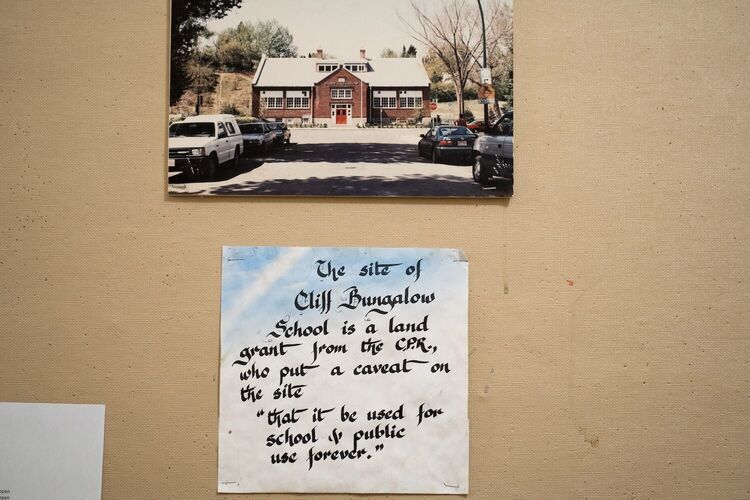 The site of
Cliff Bungalow
School is a land
grant from the C.P.R.,
who put a caveat on
the site
"that it be used for
school & public
use forever."
open
open